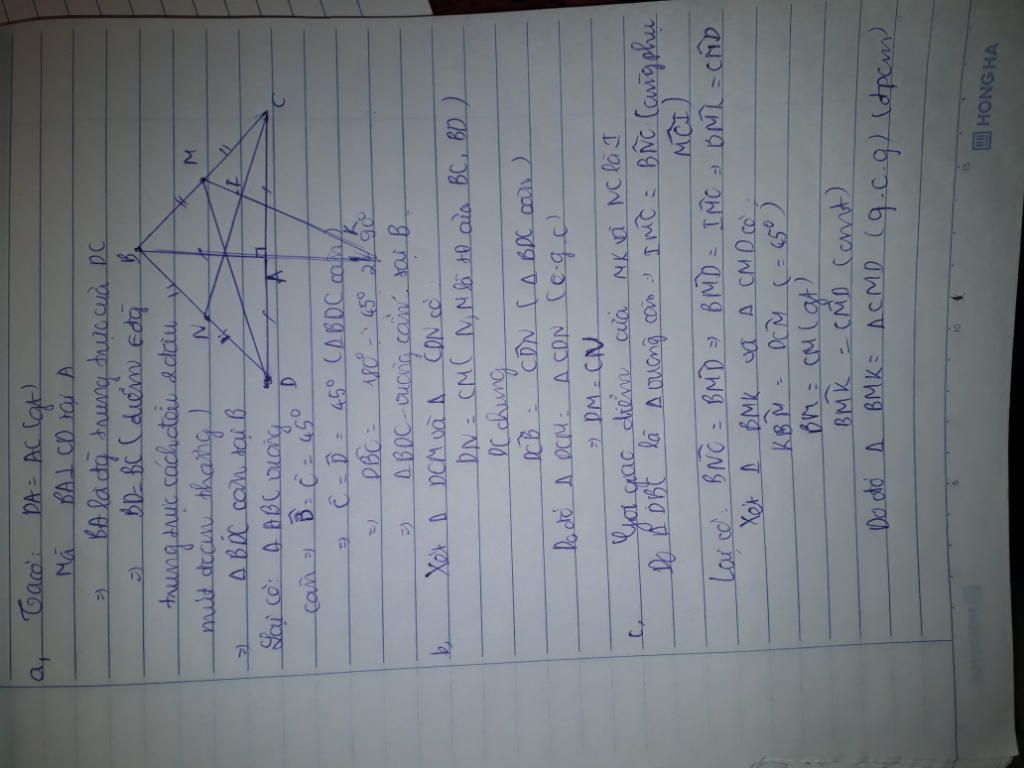 a, Ta có: DA = AC (gt)
Mà BA ⊥ CD tại A
⇒ BA là đg trung trực của DC
⇒ BD = BC (điểm ∈ đg
trung trực cách đều 2 đầu
mút đoạn thẳng)
⇒ Δ BDC cân tại B
Lại có: Δ ABC vuông
cân ⇒ B̂ = Ĉ = 45°
⇒ Ĉ = D̂ = 45° (Δ BDC cân)
⇒ DB̂C = 180° - 45° . 2 = 90°
⇒ Δ BDC vuông cân tại B
b, Xét Δ DCM và Δ CDN có:
DN = CM ( N, M là TĐ của BC, BD)
DC chung
DĈB = CD̂N (Δ BDC cân)
Do đó Δ DCM = Δ CDN (c.g.c)
⇒ DM = CN
c, Gọi giao điểm của MK và NC là I
Do Δ DBC là Δ vuông cân ⇒ IM̂C = BN̂C (cùng phụ
MĈI)
Lại có: BN̂C = BM̂D ⇒ BM̂D = IM̂C ⇒ BM̂K = CM̂D
Xét Δ BMK và Δ CMD có:
KB̂M = DĈM ( = 45°)
BM = CM (gt)
BM̂K = CM̂D (cmt)
Do đó Δ BMK = Δ CMD (g.c.g) (đpcm)
B
M
N
F
C
A
D
K
HONGHA
15
10